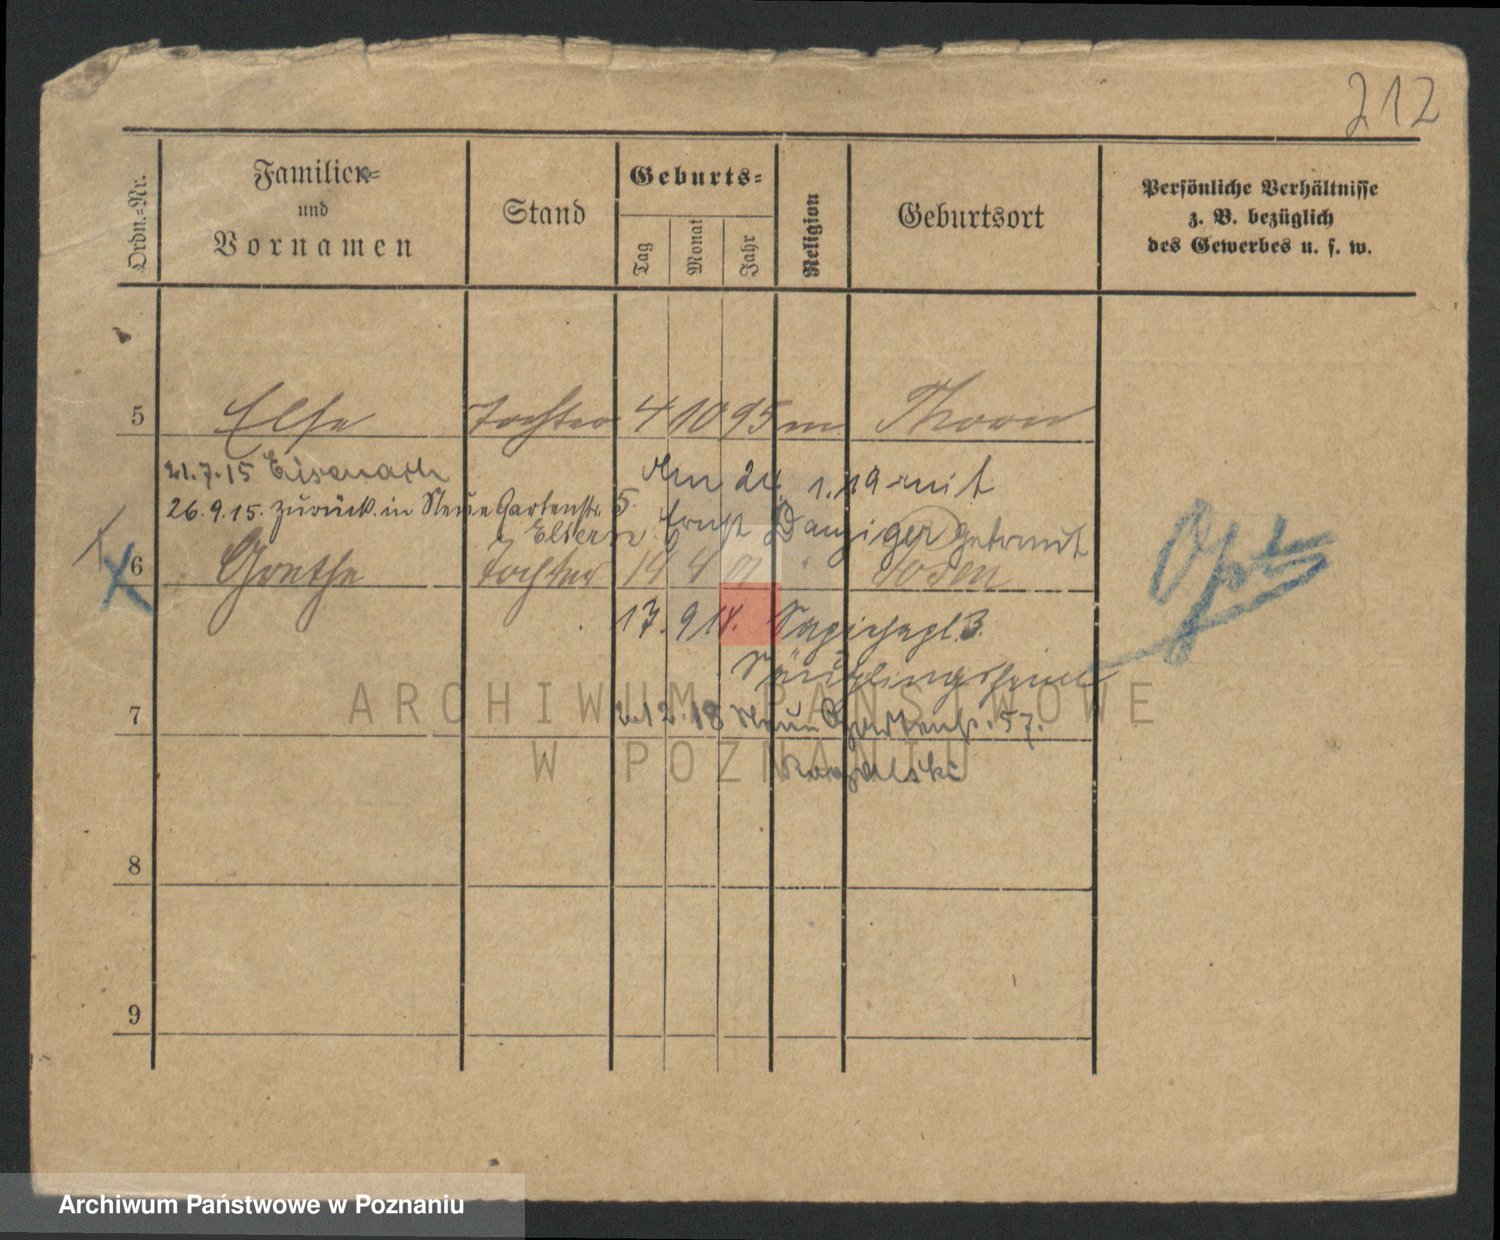 212
Ordn.=Nr.
Familien=
und
Vornamen
Stand
Geburts=
Tag
Monat
Jahr
Religion
Geburtsort
Persönliche Verhältnisse
z. B. bezüglich
des Gewerbes u. s. w.
5 Else Tochter 4 10 95 m Thorn
21.7.15 Eisenach
26.9.15. zurück in Neue Gartenstr. 5
Eltern
Am 24. 1.19 mit
Ernst Danziger getraut
6 Grethe Tochter 14 4 Posen
17. 9 14. Sapiehapl. 3.
Säuglingsheim
Opt
7
2.12.18 Neue Gartenstr. 57.
8
9
ARCHIWUM PAŃSTWOWE
W POZNANIU
Archiwum Państwowe w Poznaniu